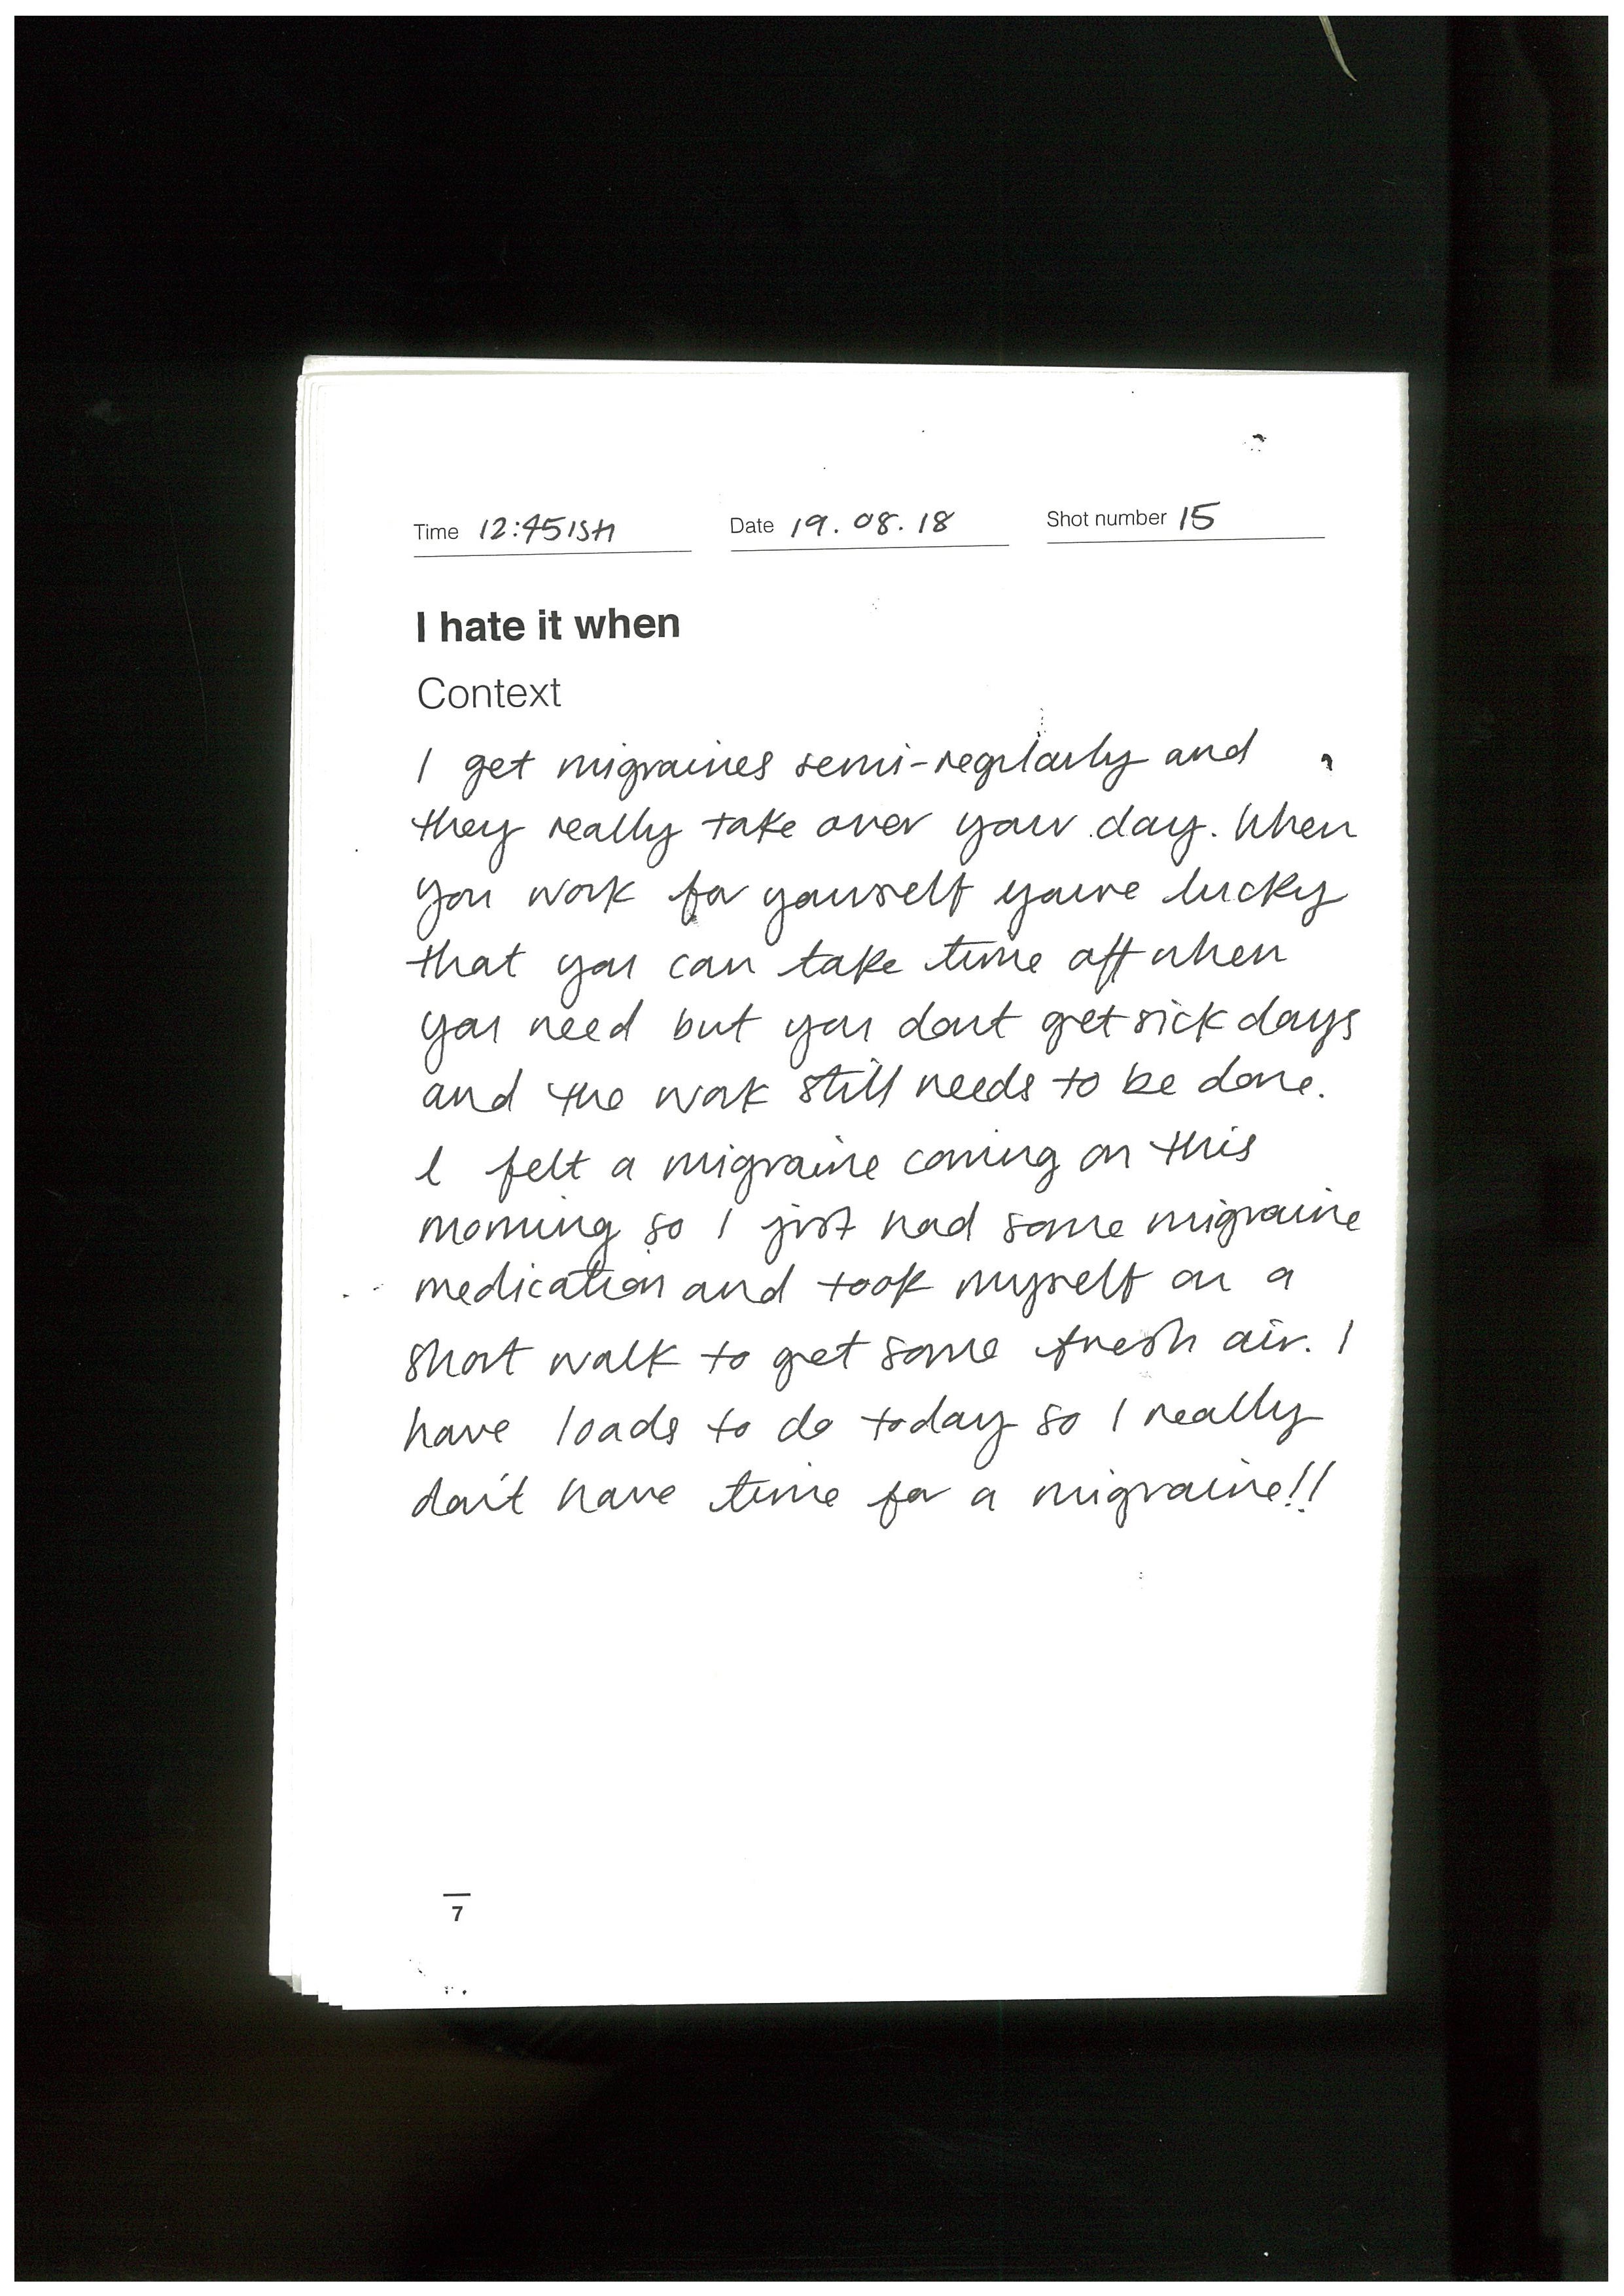 Time 12:45ISH Date 19.08.18 Shot number 15
I hate it when
Context
I get migraines semi-regularly and
they really take over your day. When
you work for yourself you're lucky
that you can take time off when
you need but you dont get sick days
and the work still needs to be done.
I felt a migraine coming on this
morning so I just had some migraine
medication and took myself on a
short walk to get some fresh air. I
have loads to do today so I really
don't have time for a migraine!!
7